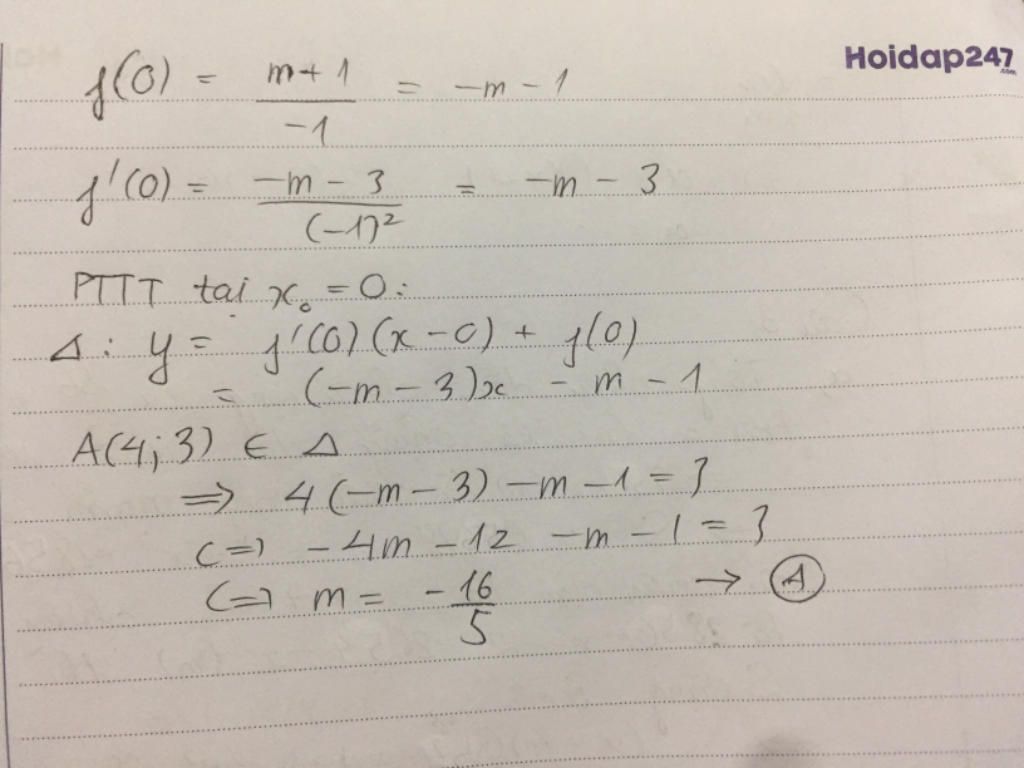 Hoidap247
.com
f(0) = m+1 / -1 = -m - 1
f'(0) = -m - 3 / (-1)² = -m - 3
PTTT tại x₀ = 0:
Δ: y = f'(0)(x-0) + f(0)
= (-m - 3)x - m - 1
A(4;3) ∈ Δ
=> 4(-m-3) -m -1 = 3
<=> -4m -12 -m -1 = 3
<=> m = -16/5 → A